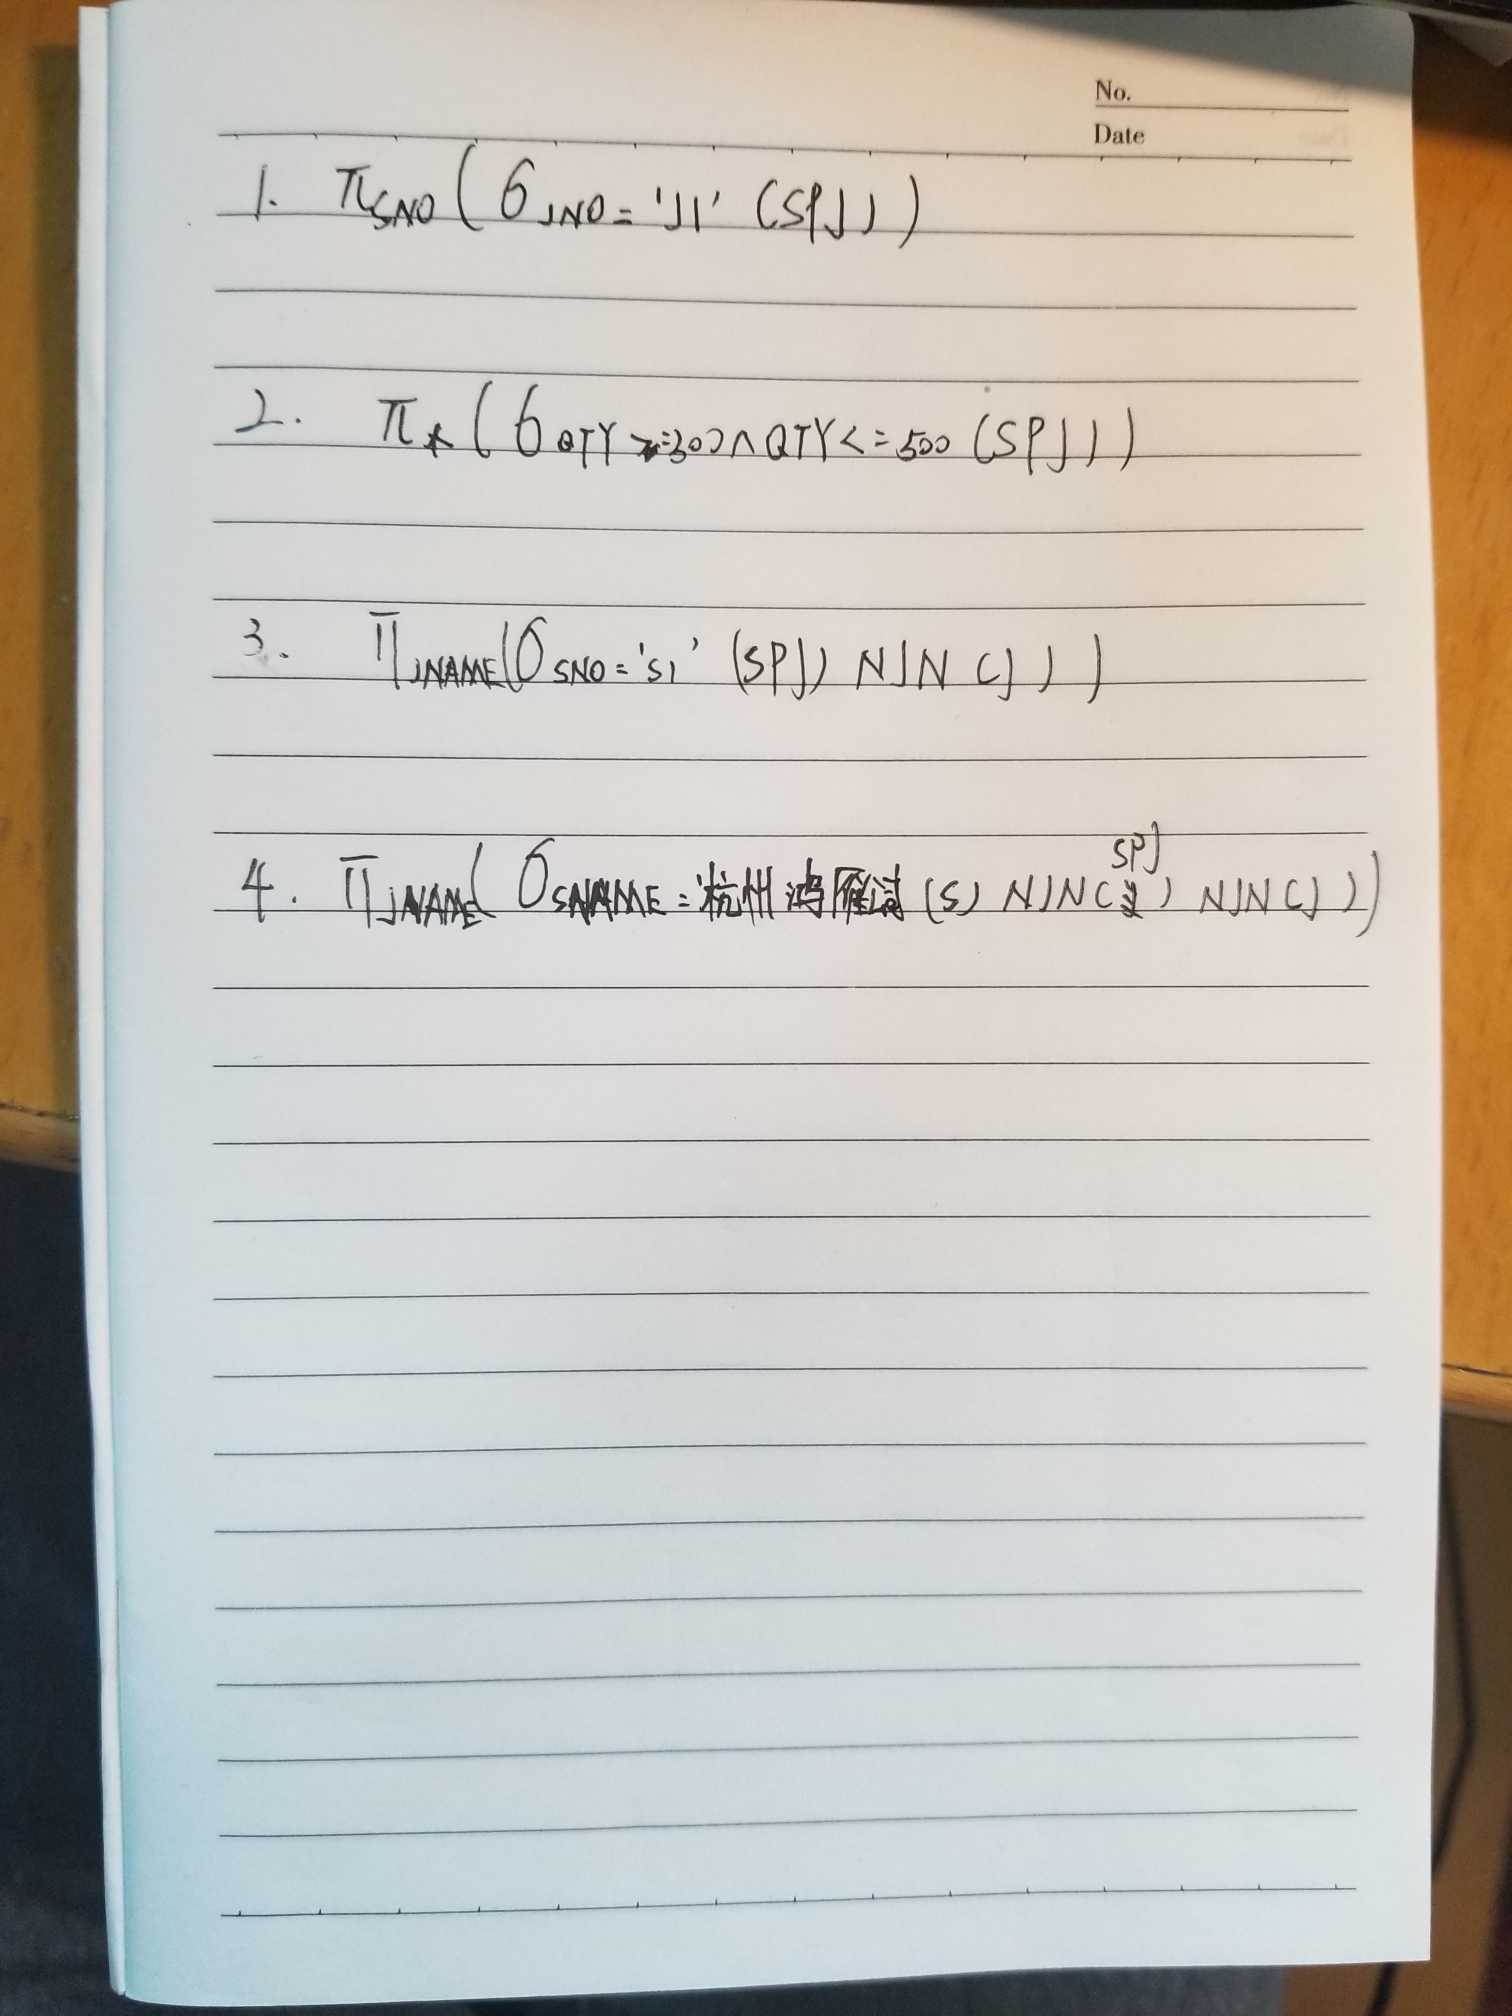 No.
Date
1. π SNO ( σ JNO = 'J1' (SPJ) )
2. π * ( σ QTY >= 300 ∧ QTY <= 500 (SPJ) )
3. π JNAME ( σ SNO = 'S1' (SPJ) NJN (J) )
SPJ
4. π JNAME ( σ SNAME = '杭州鸿雁 (S) NJN ( ) NJN (J) )